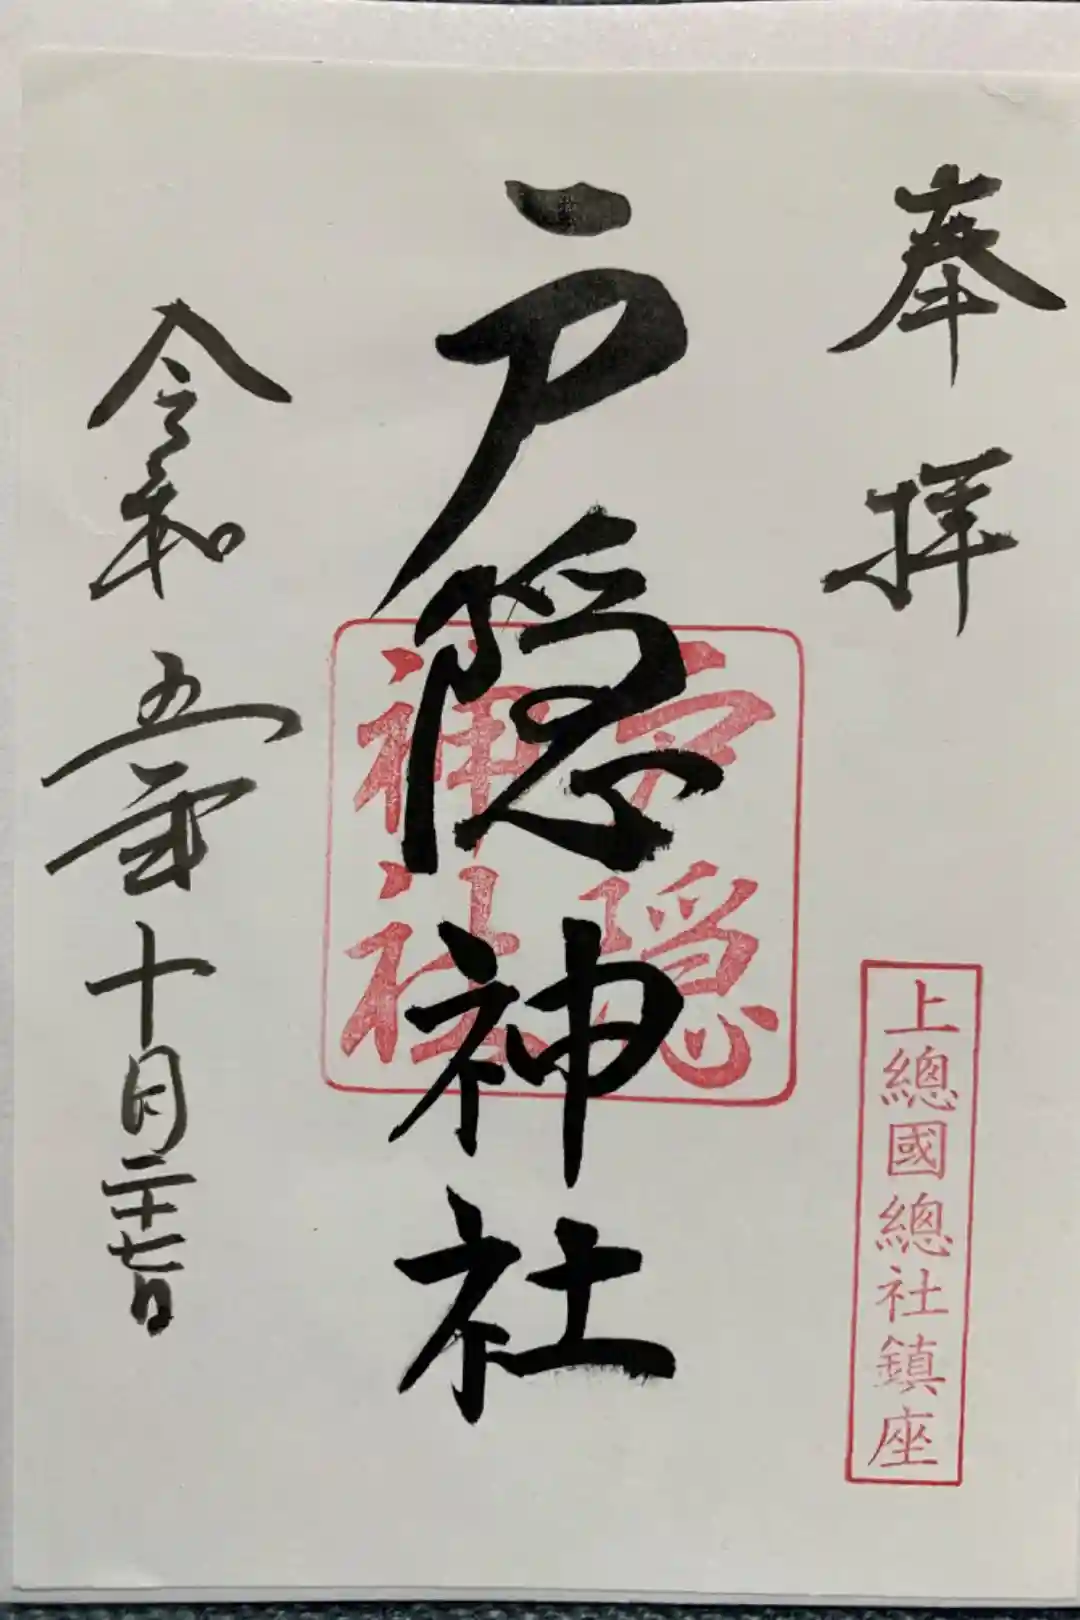 奉拝
上總國總社鎮座
戸隠神社
戸隠
神社
令和五年十月二十七日